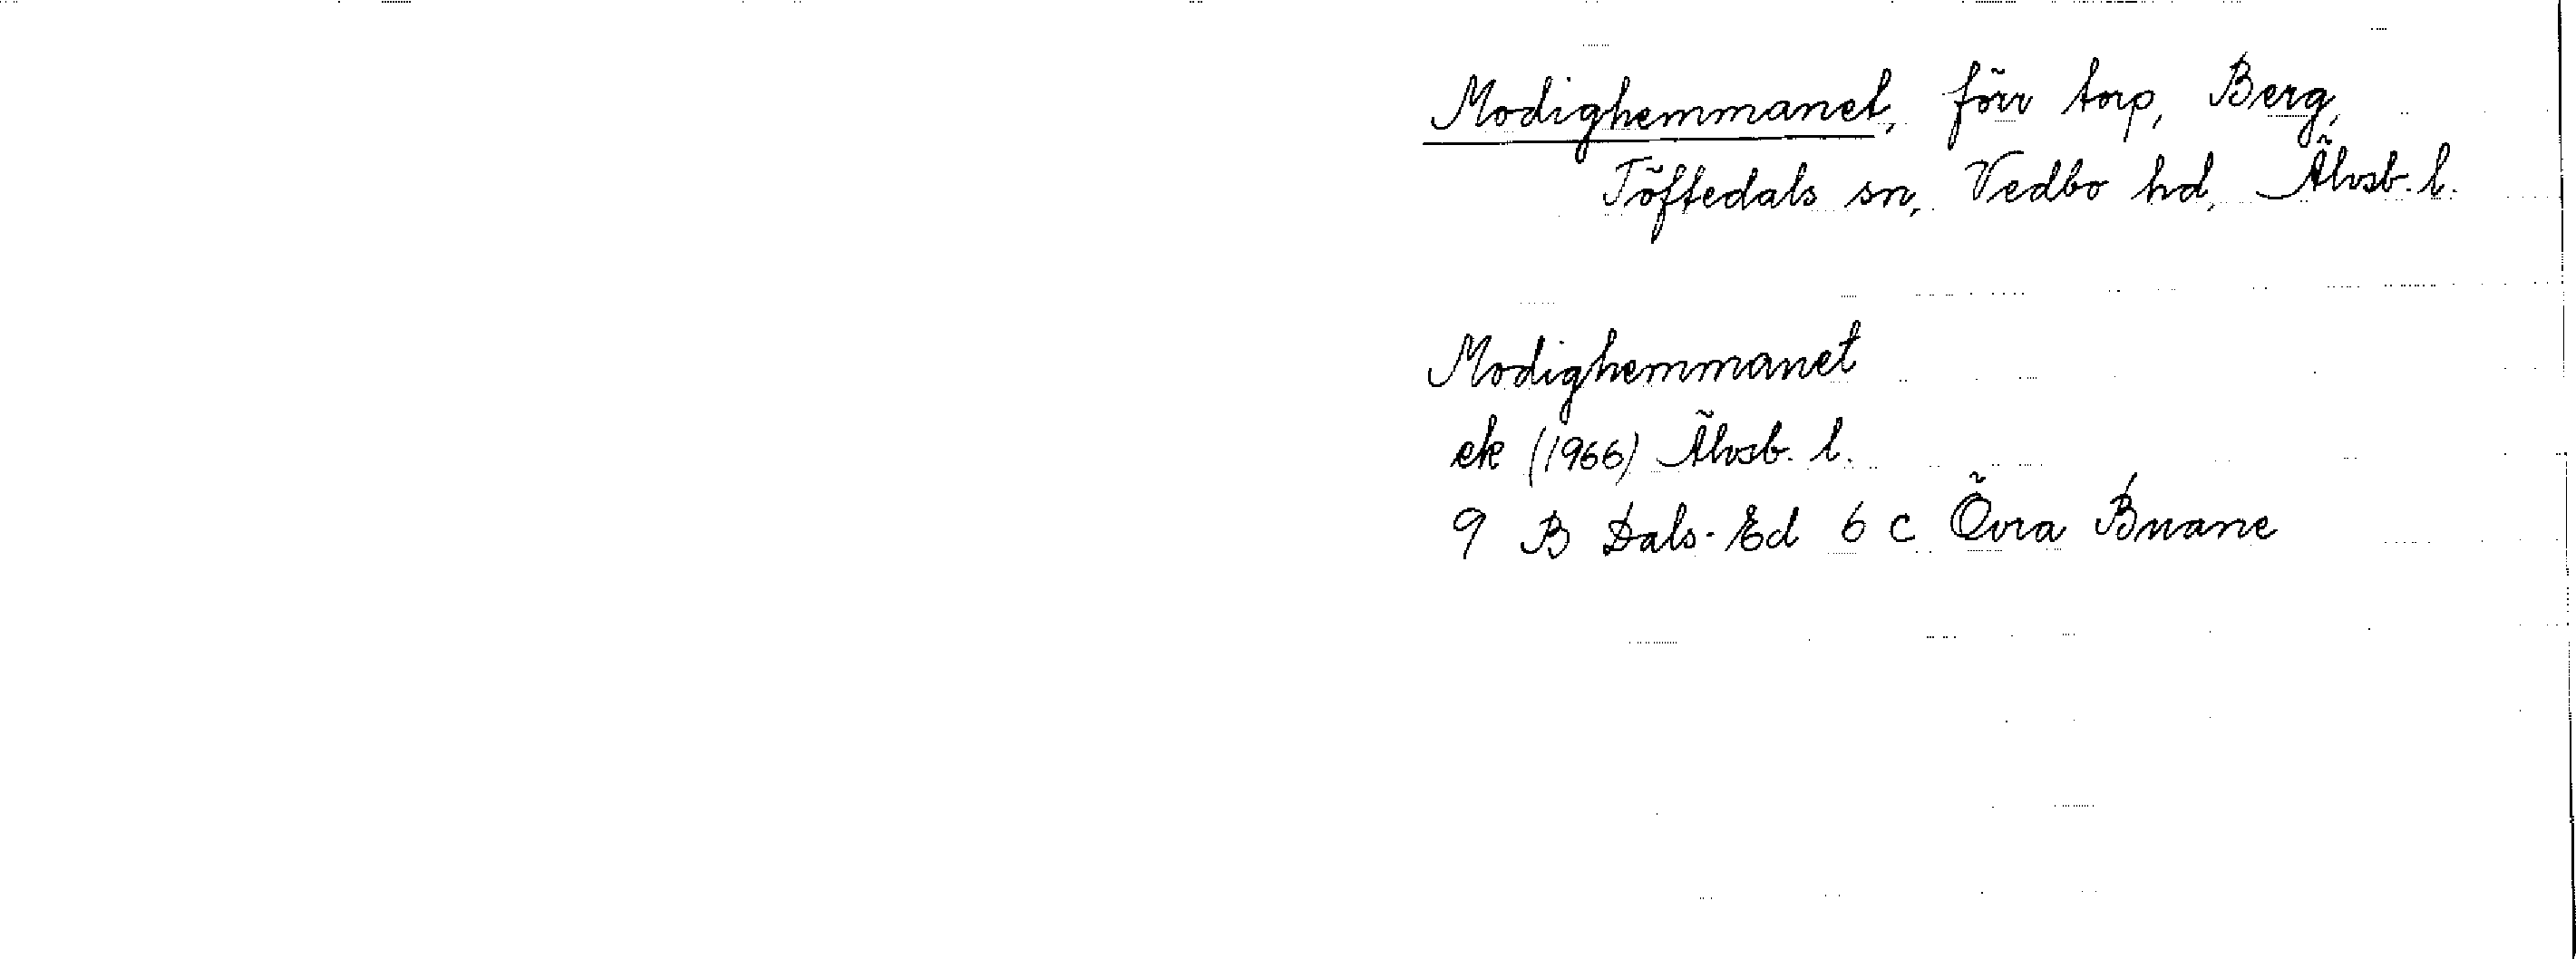 Modighemmanet, förr torp, Berg,
Töftedals sn, Vedbo hd, Älvsb. l.
Modighemmanet
ek (1966) Älvsb. l.
9 B Dals-Ed 6 c Övra Buane